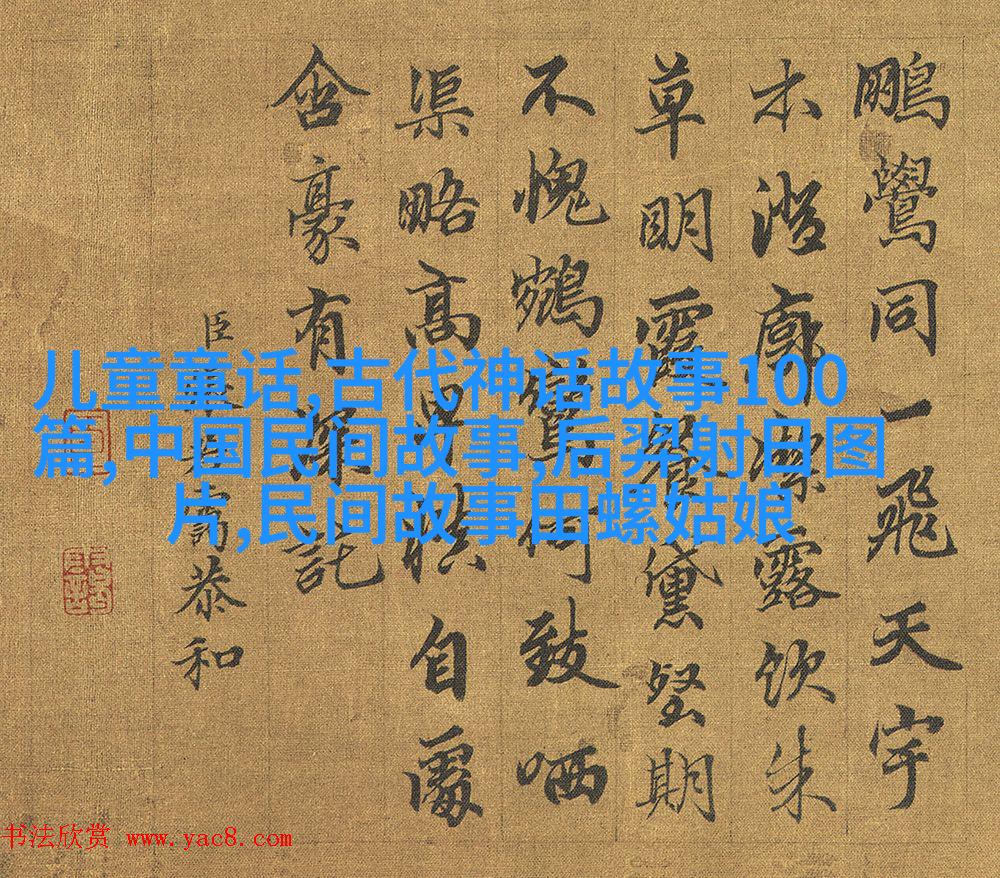 鵬鷽同一飛天宇
本澄廓潔露飲朱
草明霞餐黛壑期
不愧鶴鸞何致哂
渠略高自屬
含豪有深託
臣恭和
儿童童话,古代神话故事100
篇,中国民间故事,后羿射日图
片,民间故事田螺姑娘
书法欣赏 www.yac8.com